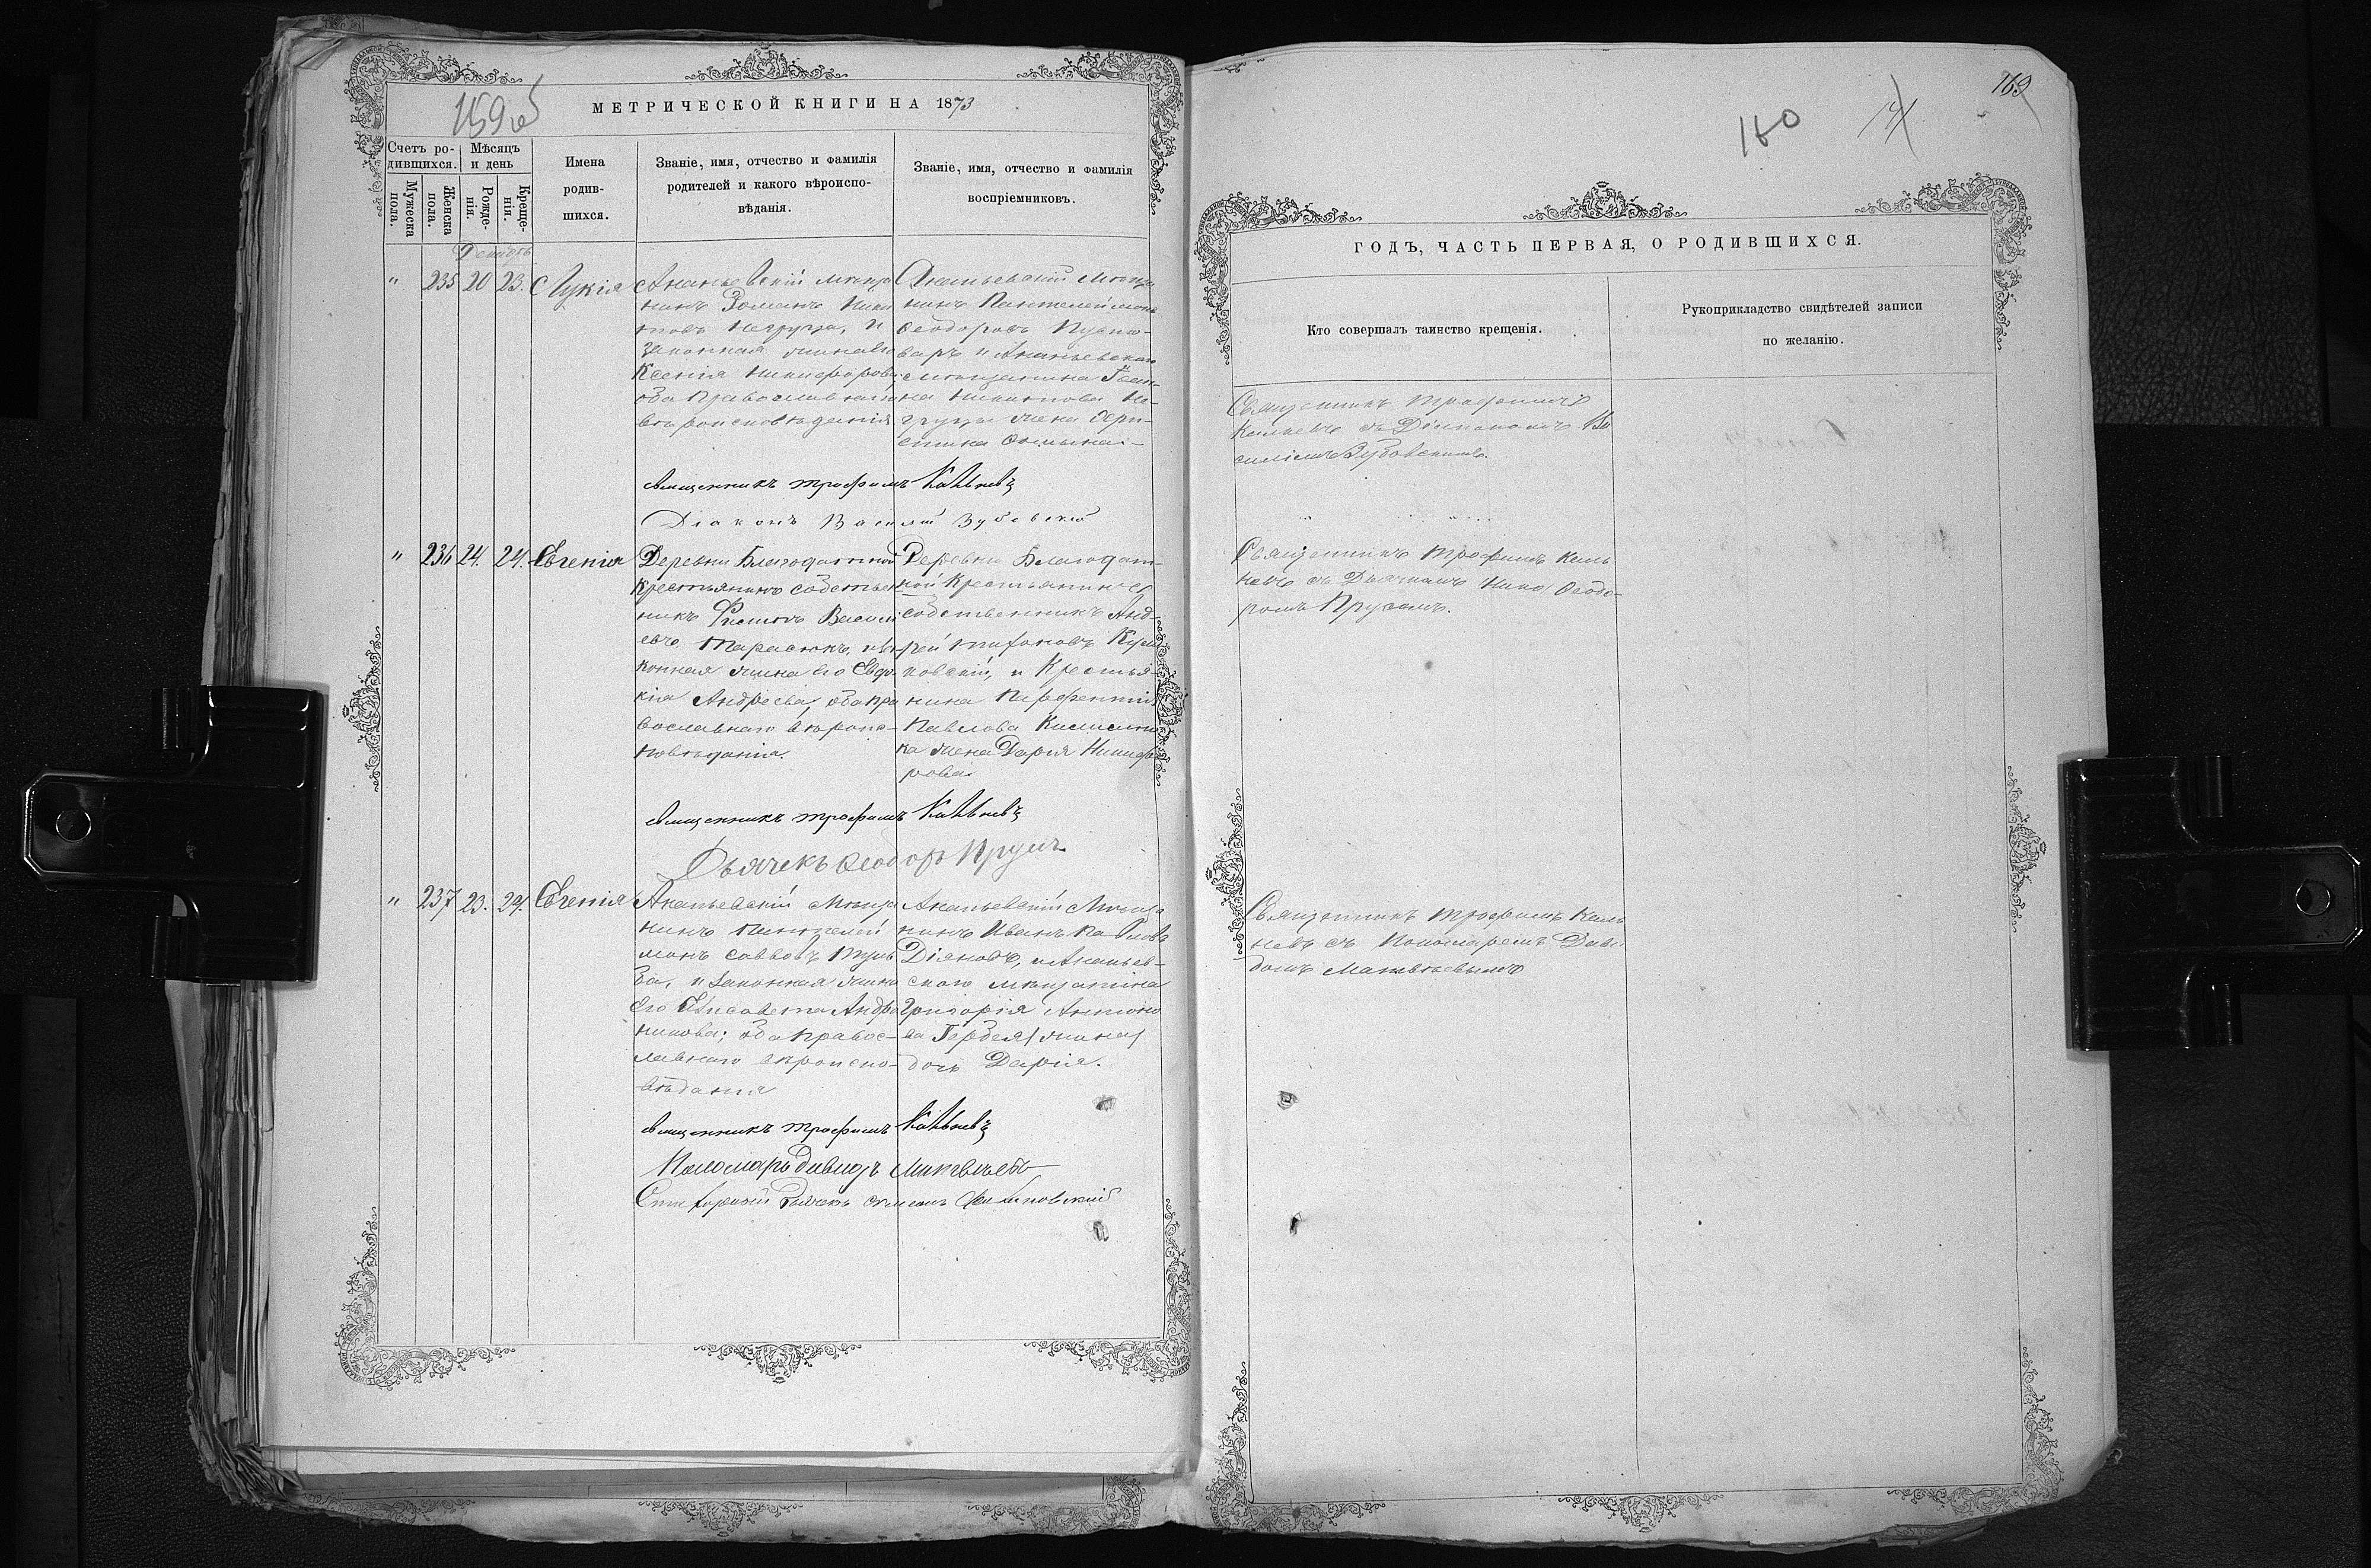 159 об
МЕТРИЧЕСКОЙ КНИГИ НА 1873
Счетъ родившихся.
Мужеска пола.
Женска пола.
Мѣсяцъ и день
Рожденія.
Крещенія.
Имена родившихся.
Званіе, имя, отчество и фамилія
родителей и какого вѣроиспо-
вѣданія.
Званіе, имя, отчество и фамилія
воспріемниковъ.
Декабрь
" 235 20 23. Лукія
Ананьевскій мѣща
нинъ Романъ Ники
товъ Негруца, и
законная жена его
Ксенія Никифорова
оба Православнаго
вѣроисповѣданія
Ананьевскій мѣща
нинъ Пантелеймонъ
Ѳеодоровъ
и Ананьевскаго
мѣщанина
на Никитова Не-
груца жена Хри-
стина
Священникъ Трофимъ Кальневъ
Діаконъ Василій Зубовскій
" 236 24. 24. Евгенія
Деревни Благодатной
Крестьянинъ собствен
никъ Филипъ Васили
евъ Тарасюкъ, и за
конная жена его Евдо
кія Андреева, оба пра
вославнаго вѣроис-
повѣданія.
Деревни Благодат-
ной Крестьянинъ
собственникъ Анд-
рей Тихоновъ
и Крестья-
нина Парфентія
Павлова
жена Дарія Никифо
рова
Священникъ Трофимъ Кальневъ
Дьячекъ Ѳеодоръ Прусъ
" 237 23. 29. Евгенія
Ананьевскій мѣща
нинъ Пантелей
монъ Саввовъ
и законная жена
его Елисавета Андро
никова; оба правос-
лавнаго вѣроиспо-
вѣданія
Ананьевскій мѣща
нинъ Иванъ Павловъ
Діяновъ, и Ананьев-
скаго мѣщанина
Григорія Антоно
ва
дочь Дарія.
Священникъ Трофимъ Кальневъ
Пономарь Давидъ Матвѣевъ
160
163
ГОДЪ, ЧАСТЬ ПЕРВАЯ, О РОДИВШИХСЯ.
Кто совершалъ таинство крещенія.
Рукоприкладство свидѣтелей записи
по желанію.
Священникъ Трофимъ
Кальневъ съ Діакономъ Ва
силіемъ Зубовскимъ.
Священникъ Трофимъ Каль
невъ съ Дьячкомъ Ѳеодо-
ромъ Прусомъ.
Священникъ Трофимъ Каль
невъ съ Пономаремъ Дави
домъ Матвѣевымъ